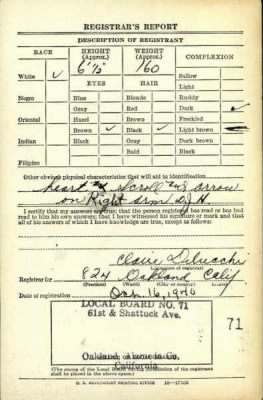 REGISTRAR'S REPORT
DESCRIPTION OF REGISTRANT
RACE HEIGHT (Approx.) WEIGHT (Approx.) COMPLEXION
6' ½" 160
White ✓ EYES HAIR Sallow
Light
Negro Blue Blonde Ruddy
Gray Red Dark ✓
Oriental Hazel Brown Freckled
Brown ✓ Black ✓ Light brown
Indian Black Gray Dark brown
Bald Black
Filipino
Other obvious physical characteristics that will aid in identification
heart & scroll & arrow
on Right arm
I certify that my answers are true; that the person registered has read or has had
read to him his own answers; that I have witnessed his signature or mark and that
all of his answers of which I have knowledge are true, except as follows:
Claire Delucchi
(Signature of registrar)
Registrar for 824 Oakland Calif
(Precinct) (Ward) (City or county) (State)
Date of registration Oct. 16, 1940
LOCAL BOARD NO. 71
61st & Shattuck Ave.
71
Oakland, Alameda Co.
California
(The stamp of the Local Board having jurisdiction of the registrant
shall be placed in the above space.)
U. S. GOVERNMENT PRINTING OFFICE